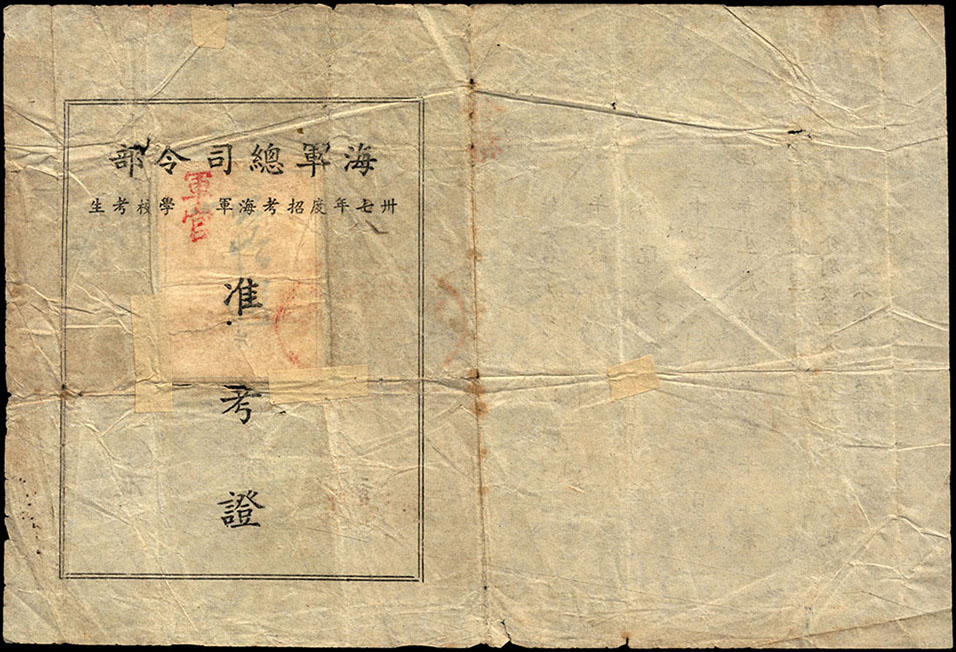 海軍總司令部
卅七年度招考海軍 學校考生
八
軍官
准
考
證